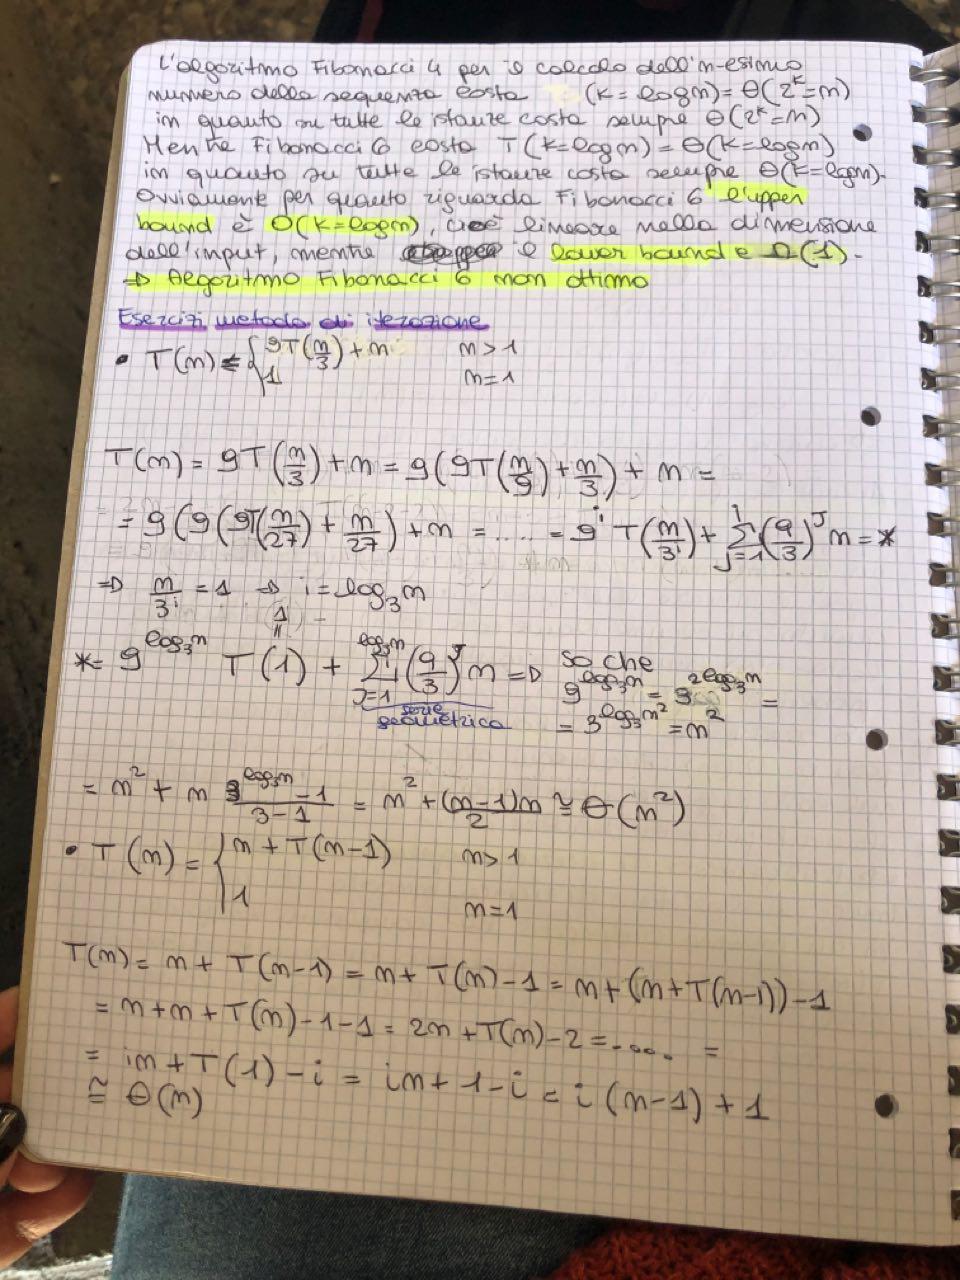 L'algoritmo Fibonacci 4 per il calcolo dell'n-esimo
numero della sequenza costa (k = logn) = Θ(2^k = n)
in quanto su tutte le istanze costa sempre Θ(2^k = n)
Mentre Fibonacci 6 costa T(k = logn) = Θ(k = logn)
in quanto su tutte le istanze costa sempre Θ(k = logn).
Ovviamente per quanto riguarda Fibonacci 6 l'upper
bound è O(k = logn), cioè lineare nella dimensione
dell'input, mentre il lower bound e Ω(1).
⇒ Algoritmo Fibonacci 6 non ottimo
Esercizi metodo di iterazione
• T(n) = { 9T(n/3) + n n > 1
1 n = 1
T(n) = 9T(n/3) + n = 9(9T(n/9) + n/3) + n =
= 9(9(9T(n/27) + n/27) + n = ..... = 9^i T(n/3^i) + Σ_{j=1}^{i} (9/3)^j n = *
⇒ n/3^i = 1 ⇒ i = log₃n
1
=
* = 9^{log₃n} T(1) + Σ_{j=1}^{log₃n} (9/3)^j n ⇒ so che
serie
geometrica
9^{log₃n} = 3^{2log₃n} =
= 3^{log₃n²} = n²
= n² + n (3^{log₃n} - 1)/(3 - 1) = n² + (n-1)n/2 ≅ Θ(n²)
• T(n) = { n + T(n-1) n > 1
1 n = 1
T(n) = n + T(n-1) = n + T(n) - 1 = n + (n + T(n-1)) - 1
= n + n + T(n) - 1 - 1 = 2n + T(n) - 2 = ..... =
= in + T(1) - i = in + 1 - i = i(n-1) + 1
≅ Θ(n)